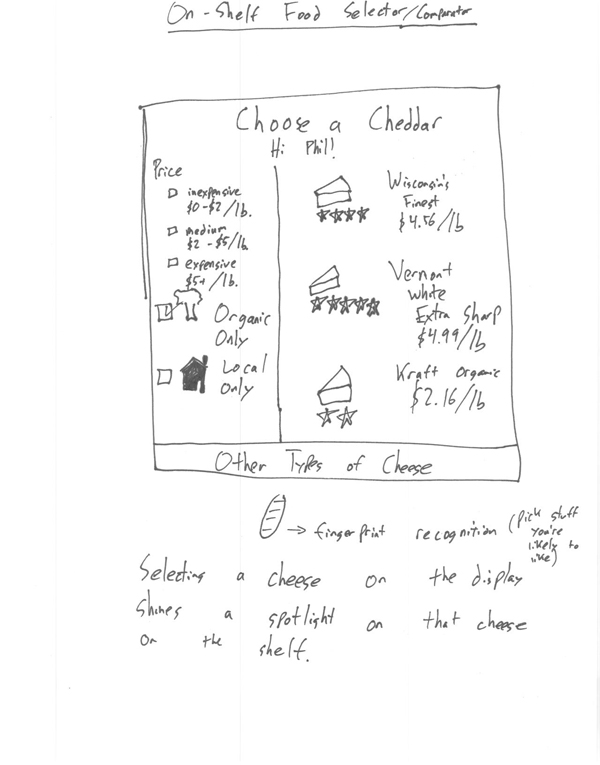 On-Shelf Food Selector/Comparator
Choose a Cheddar
Hi Phil!
Price
inexpensive
$0-$2/lb.
medium
$2-$5/lb.
expensive
$5+/lb.
Organic
Only
Local
Only
Wisconsin's
Finest
$4.56/lb
Vermont
White
Extra Sharp
$4.99/lb
Kraft Organic
$2.16/lb
Other Types of Cheese
→ fingerprint recognition (pick stuff
you're
likely to
like)
Selecting a cheese on the display
shines a spotlight on that cheese
on the shelf.